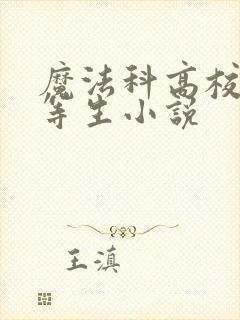 魔法科高校
等生小説
王滇